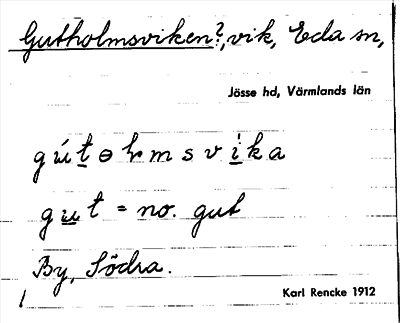 Gutholmsviken?, vik, Eda sn,
Jösse hd, Värmlands län
gu̲t = no. gut
By, Södra.
Karl Rencke 1912